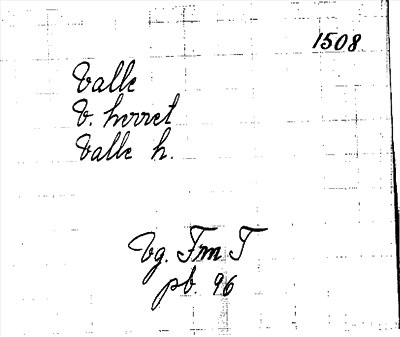 1508
Valle
V. herret
Valle h.
Vg. Fm T
pb. 96